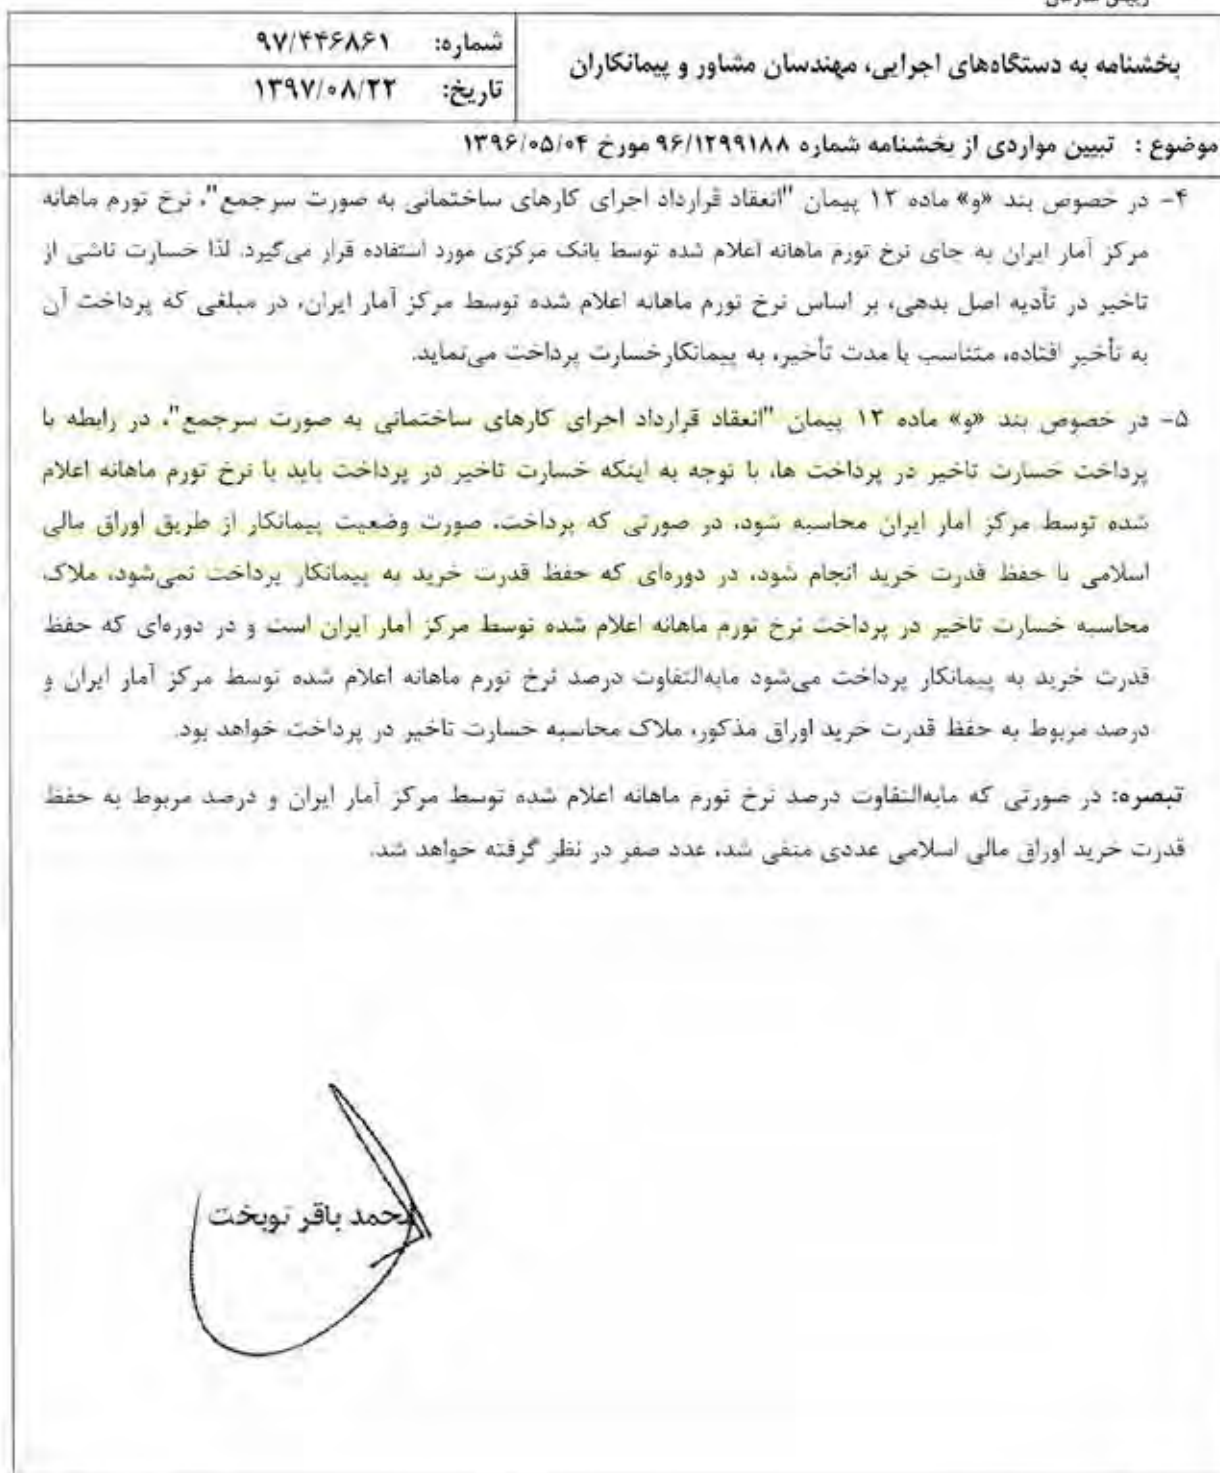 بخشنامه به دستگاه‌های اجرایی، مهندسان مشاور و پیمانکاران
شماره: ۹۷/۴۴۶۸۶۱
تاریخ: ۱۳۹۷/۰۸/۲۲
موضوع : تبیین مواردی از بخشنامه شماره ۹۶/۱۲۹۹۱۸۸ مورخ ۱۳۹۶/۰۵/۰۴
۴- در خصوص بند «و» ماده ۱۲ پیمان "انعقاد قرارداد اجرای کارهای ساختمانی به صورت سرجمع"، نرخ تورم ماهانه
مرکز آمار ایران به جای نرخ تورم ماهانه اعلام شده توسط بانک مرکزی مورد استفاده قرار می‌گیرد. لذا خسارت ناشی از
تاخیر در تأدیه اصل بدهی، بر اساس نرخ تورم ماهانه اعلام شده توسط مرکز آمار ایران، در مبلغی که پرداخت آن
به تأخیر افتاده، متناسب با مدت تأخیر، به پیمانکارخسارت پرداخت می‌نماید.
۵- در خصوص بند «و» ماده ۱۲ پیمان "انعقاد قرارداد اجرای کارهای ساختمانی به صورت سرجمع"، در رابطه با
پرداخت خسارت تاخیر در پرداخت ها، با توجه به اینکه خسارت تاخیر در پرداخت باید با نرخ تورم ماهانه اعلام
شده توسط مرکز آمار ایران محاسبه شود، در صورتی که پرداخت، صورت وضعیت پیمانکار از طریق اوراق مالی
اسلامی با حفظ قدرت خرید انجام شود، در دوره‌ای که حفظ قدرت خرید به پیمانکار پرداخت نمی‌شود، ملاک
محاسبه خسارت تاخیر در پرداخت نرخ تورم ماهانه اعلام شده توسط مرکز آمار ایران است و در دوره‌ای که حفظ
قدرت خرید به پیمانکار پرداخت می‌شود مابه‌التفاوت درصد نرخ تورم ماهانه اعلام شده توسط مرکز آمار ایران و
درصد مربوط به حفظ قدرت خرید اوراق مذکور، ملاک محاسبه خسارت تاخیر در پرداخت خواهد بود.
تبصره: در صورتی که مابه‌التفاوت درصد نرخ تورم ماهانه اعلام شده توسط مرکز آمار ایران و درصد مربوط به حفظ
قدرت خرید اوراق مالی اسلامی عددی منفی شد، عدد صفر در نظر گرفته خواهد شد.
محمد باقر نوبخت